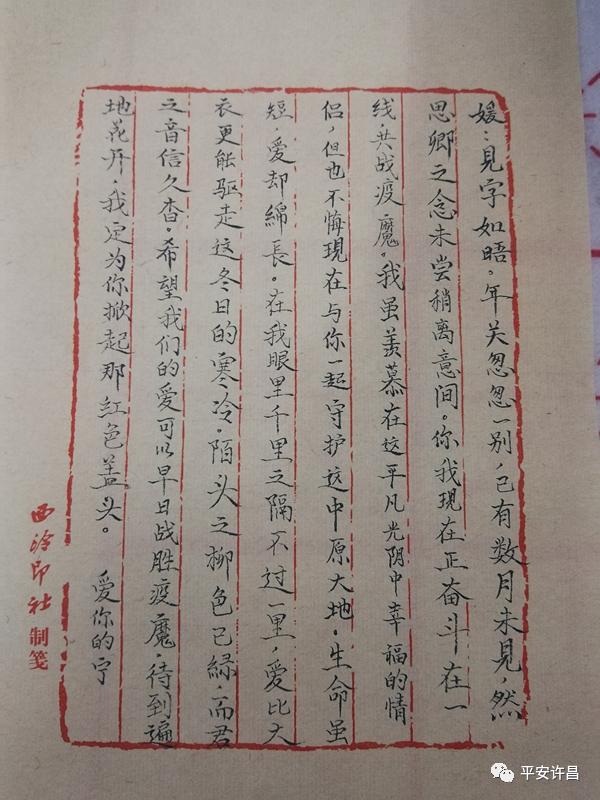 媛：見字如晤。年关忽忽一别，已有数月未見，然
思卿之念未尝稍离意间。你我现在正奋斗在一
线共战疫魔。我虽羡慕在这平凡光阴中幸福的情
侣，但也不悔現在与你一起守护这中原大地。生命虽
短，爱却綿長。在我眼里千里之隔不过一里，爱比大
衣更能驱走这冬日的寒冷。陌头之柳色已緑，而君
之音信久杳。希望我们的爱可以早日战胜疫魔，待到遍
地花开，我定为你掀起那红色盖头。 爱你的宁
西泠印社制笺
平安许昌